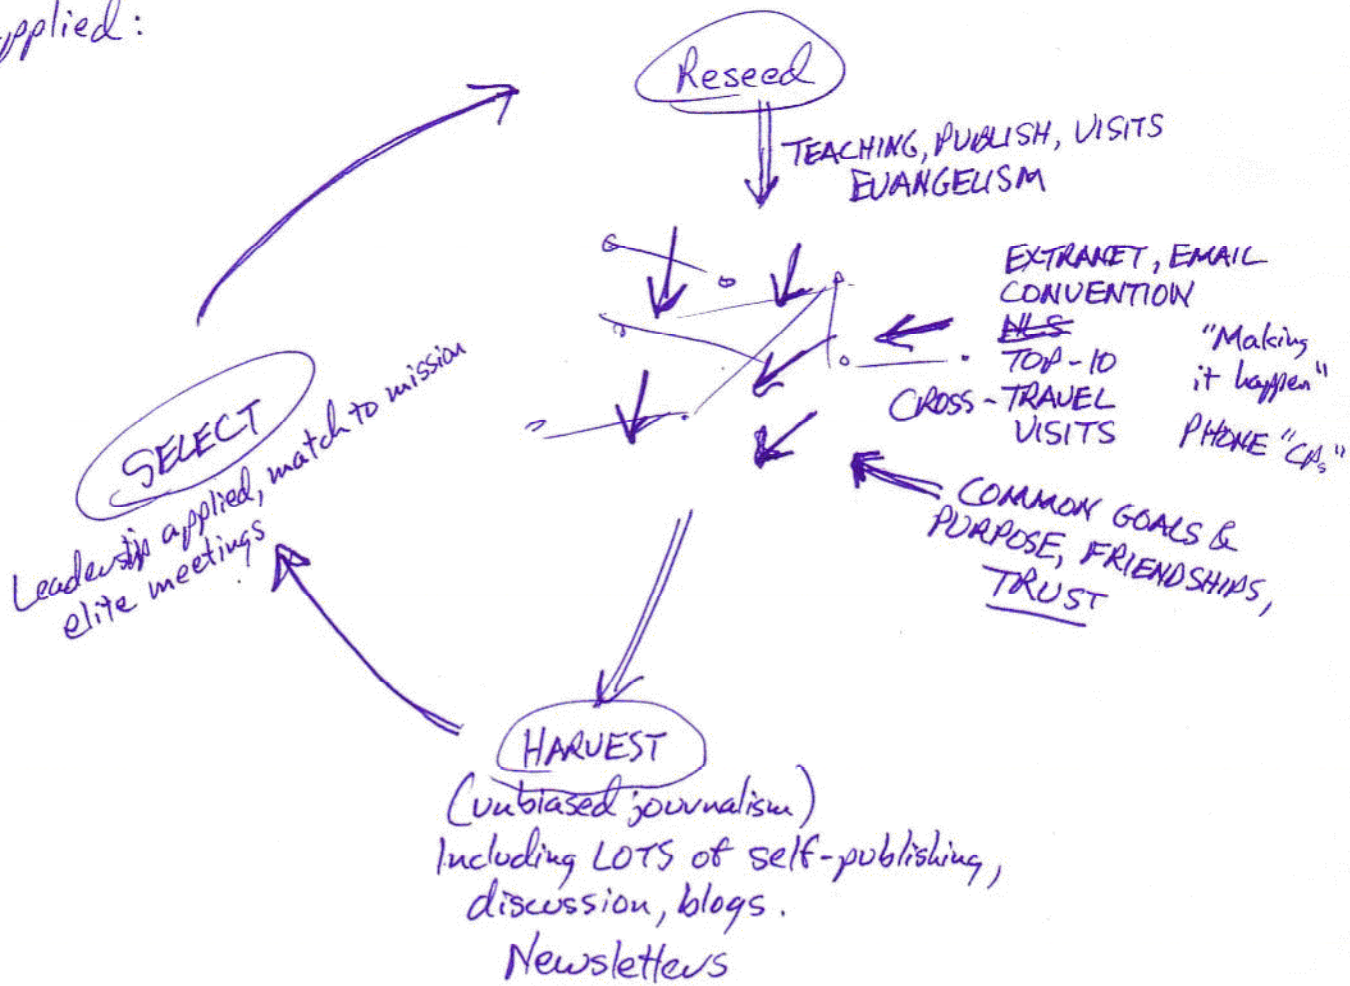 applied:
Reseed
TEACHING, PUBLISH, VISITS
EVANGELISM
EXTRANET, EMAIL
CONVENTION
NLS
TOP-10
CROSS-TRAVEL
VISITS
"Making
it happen"
PHONE "CPs"
COMMON GOALS &
PURPOSE, FRIENDSHIPS,
TRUST
SELECT
Leadership applied, match to mission
elite meetings
HARVEST
(unbiased journalism)
Including LOTS of self-publishing,
discussion, blogs.
Newsletters